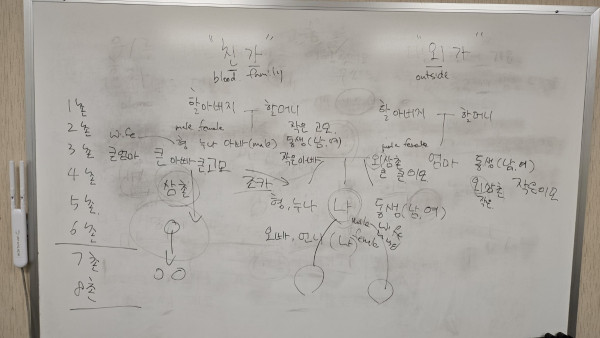 "친가"
"외가"
blood family
outside
1촌
2촌
3촌
4촌
5촌
6촌
7촌
8촌
할아버지 할머니
할아버지 할머니
male female
wife
형 누나 아빠(male) 동생(남,여)
작은 고모,
작은아빠
큰엄마 큰 아빠 큰고모
삼촌
조카
male female
외삼촌
큰
엄마
동생(남,여)
외삼촌 작은이모
작은
형,누나 나 동생(남,여)
오빠, 언니 (나)
male
female
wife